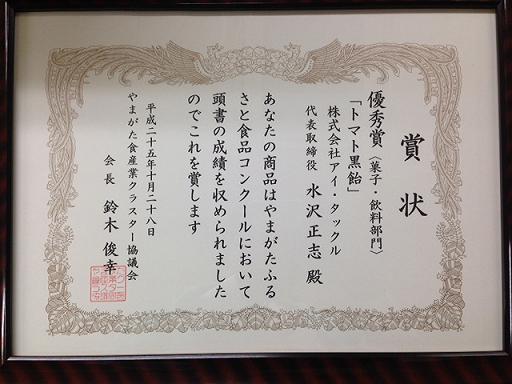 賞状
優秀賞〈菓子・飲料部門〉
「トマト黒飴」
株式会社アイ・タックル
代表取締役 水沢正志殿
あなたの商品はやまがたふる
さと食品コンクールにおいて
頭書の成績を収められました
のでこれを賞します
平成二十五年十月二十八日
やまがた食産業クラスター協議会
会長 鈴木俊幸